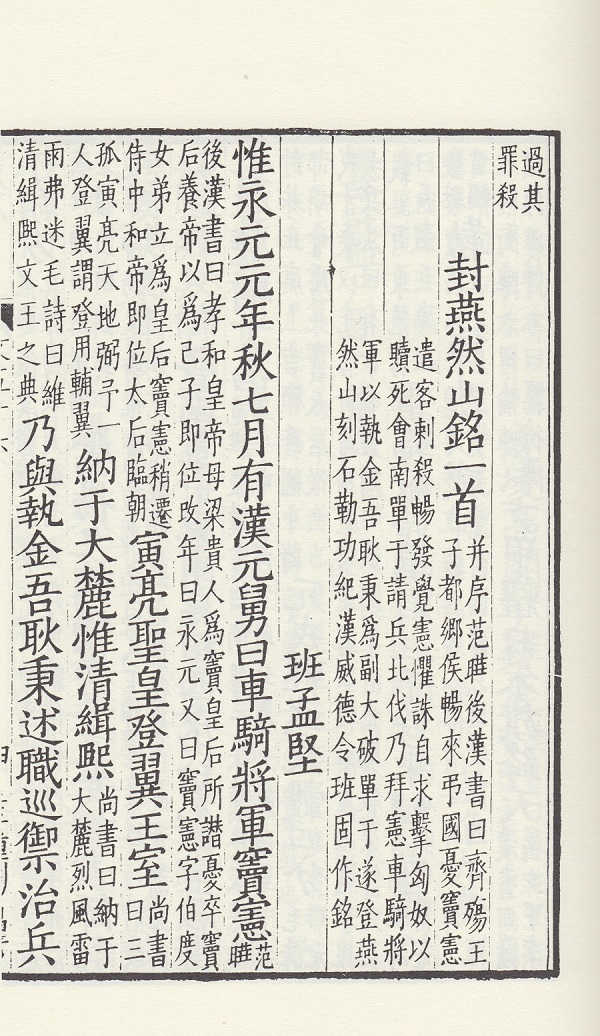 過其
罪殺
封燕然山銘一首
并序范曄後漢書曰齊殤王
子都鄉侯暢來弔國憂竇憲
遣客刺殺暢發覺憲懼誅自求擊匈奴以
贖死會南單于請兵北伐乃拜憲車騎將
軍以執金吾耿秉爲副大破單于遂登燕
然山刻石勒功紀漢威德令班固作銘
班孟堅
惟永元元年秋七月有漢元舅曰車騎將軍竇憲
范
曄
後漢書曰孝和皇帝母梁貴人爲竇皇后所譖憂卒竇
后養帝以爲己子即位改年曰永元又曰竇憲字伯度
女弟立爲皇后竇憲稍遷
侍中和帝即位太后臨朝
寅亮聖皇登翼王室
尚書
曰三
孤寅亮天地弼予一
人登翼謂登用輔翼
納于大麓惟清緝熙
尚書曰納于
大麓烈風雷
雨弗迷毛詩曰維
清緝熙文王之典
乃與執金吾耿秉述職巡禦治兵